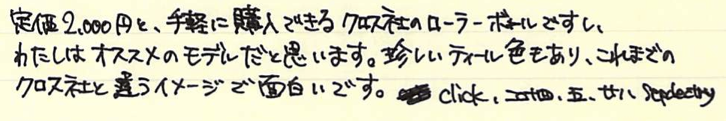 定価2,000円と、手軽に購入できるクロス社のローラーボールですし、
わたしはオススメのモデルだと思います。珍しいティール色もあり、これまでの
クロス社と違うイメージで面白いです。 click、